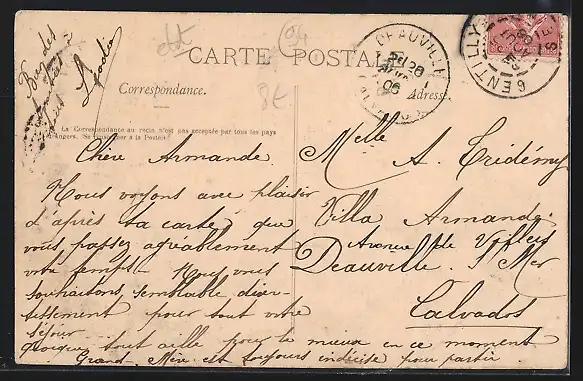 CARTE POSTALE
Correspondance.
Adresse
La Correspondance au recto n'est pas acceptée par tous les pays
étrangers. (Se renseigner à la Poste)
DEAUVILLE
28
06
CALVADOS
GENTILLY
SEINE
8€
Chère Armande
Nous voyons avec plaisir
d'après ta carte que
vous passez agréablement
votre temps. Nous vous
souhaitons semblable diver-
tissement pour tout votre
séjour
quoique tout aille pour le mieux en ce moment
Grand-Mère est toujours indécise pour partir.
Bien des
Melle A. Tridémy
Villa Armande
Avenue de Villers
Deauville s/ Mer
Calvados